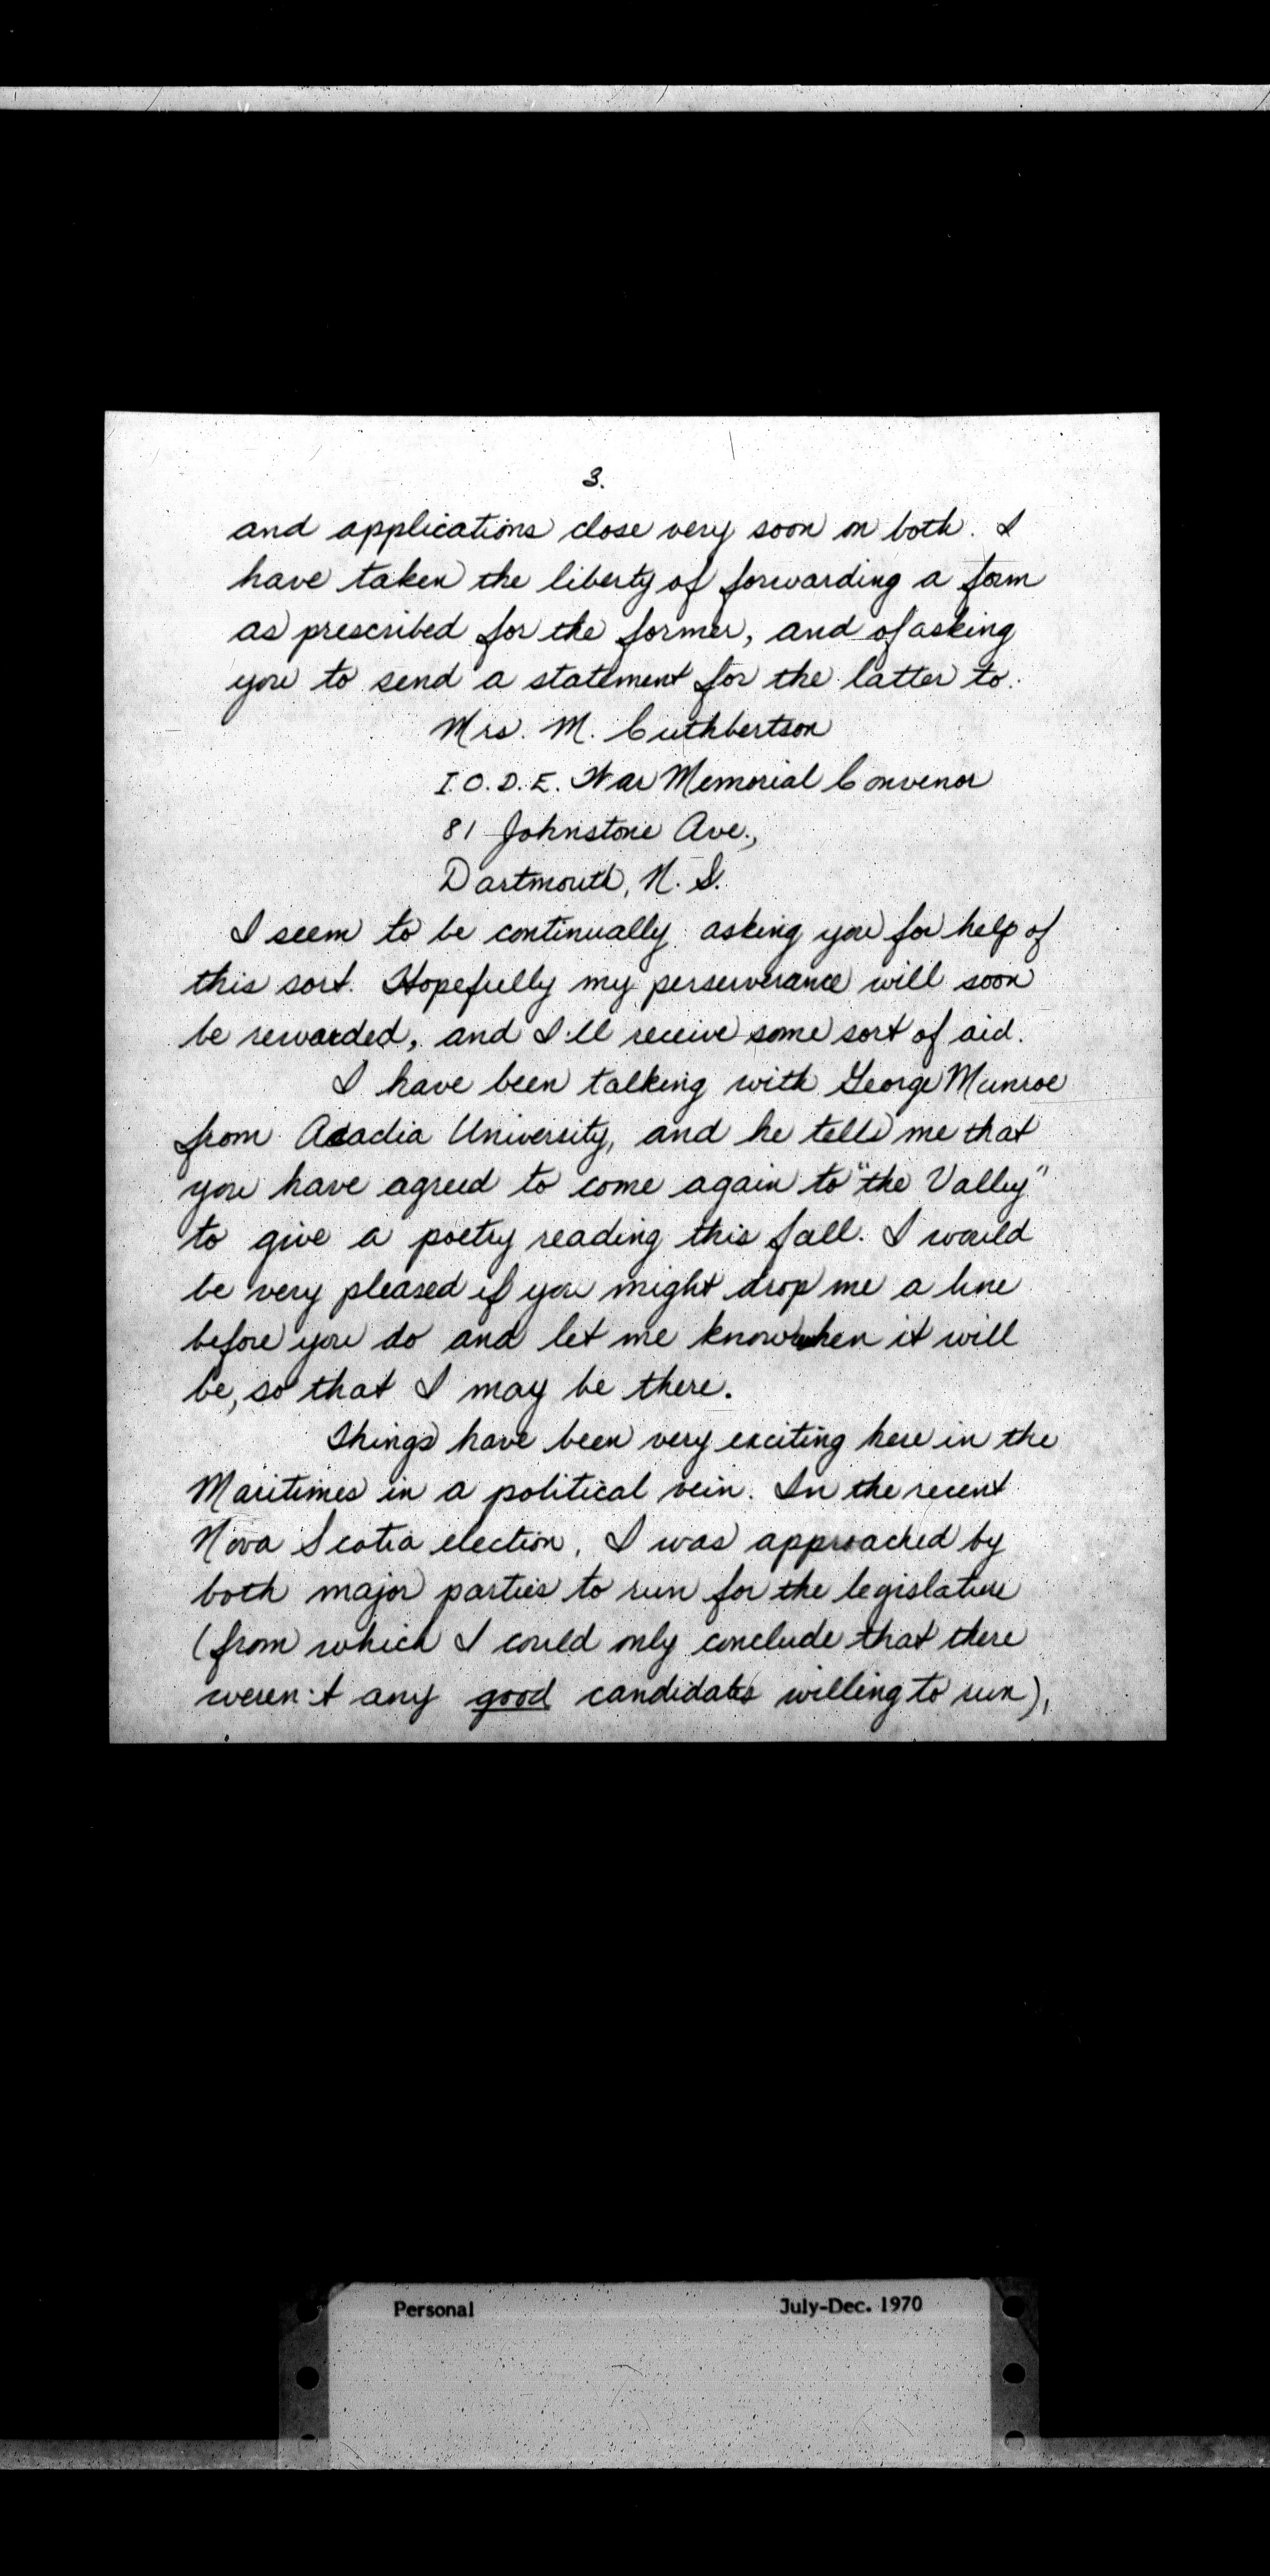 3.
and applications close very soon on both. I
have taken the liberty of forwarding a form
as prescribed for the former, and of asking
you to send a statement for the latter to:
Mrs. M. Cuthbertson
I.O.D.E. War Memorial Convenor
81 Johnstone Ave.,
Dartmouth, N.S.
I seem to be continually asking you for help of
this sort. Hopefully my perserverance will soon
be rewarded, and I'll receive some sort of aid.
I have been talking with George Munroe
from Acadia University, and he tells me that
you have agreed to come again to "the Valley"
to give a poetry reading this fall. I would
be very pleased if you might drop me a line
before you do and let me know when it will
be, so that I may be there.
Things have been very exciting here in the
Maritimes in a political vein. In the recent
Nova Scotia election, I was approached by
both major parties to run for the legislature
(from which I could only conclude that there
weren't any good candidates willing to run),
Personal July-Dec. 1970